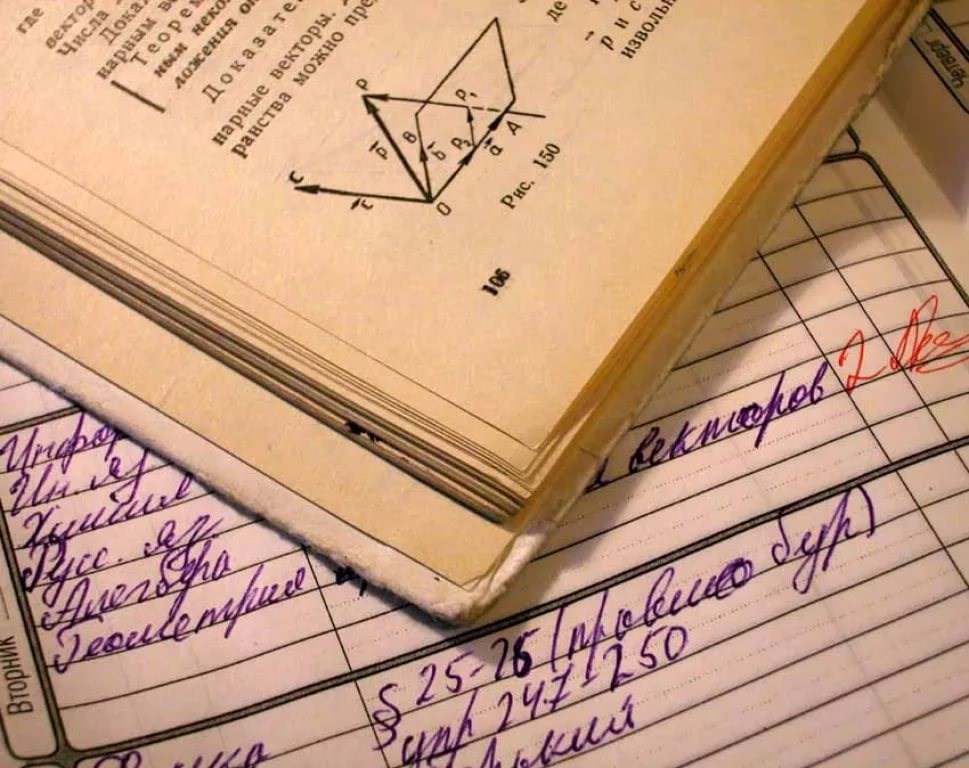 где
вектор
Числа
Дока
нарным ве
Теорем
ным неко
ложения
Доказате
нарные векторы.
ранства можно пре
де
p⃗ и с
извольн
P
B
P₁
A
p⃗
b⃗
P₂
a⃗
C
c⃗
O
Рис. 150
106
Четверг
Инфор
Ин. яз
Химия
Русс. яз.
Алегбра
Геометрия
векторов
2
Вторник
§ 25-26 (правило бур)
упр 247-250